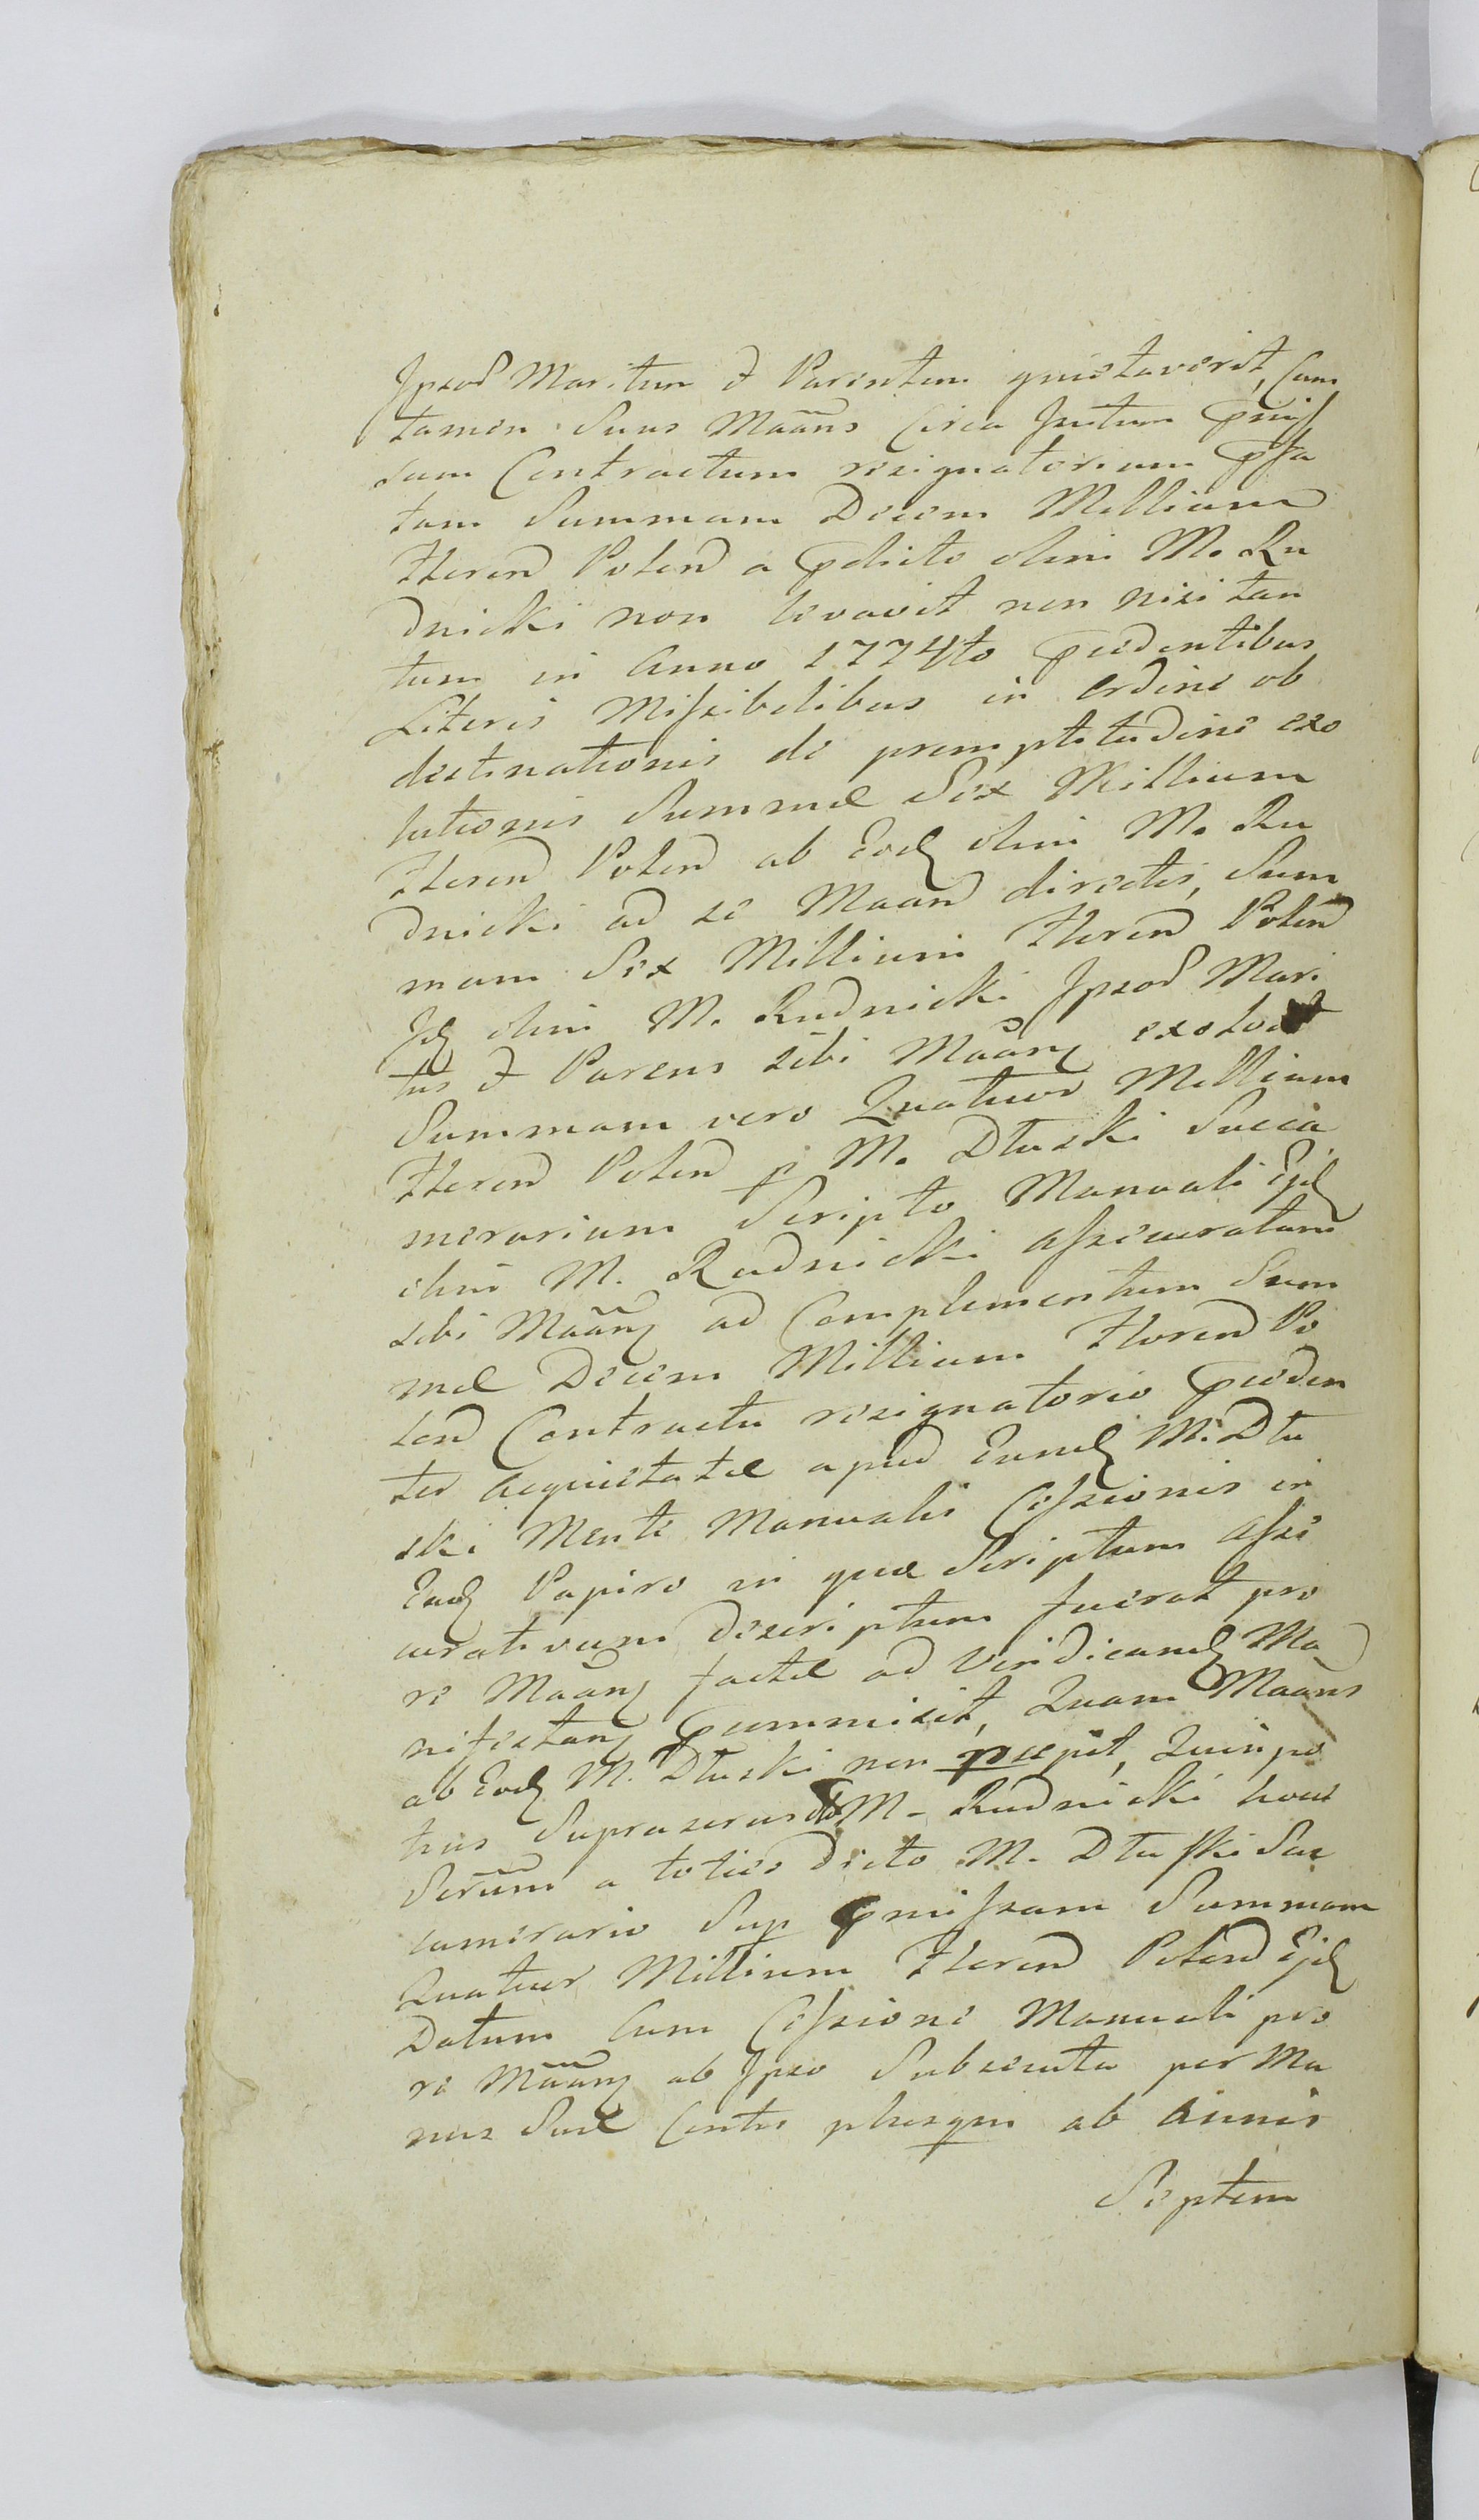 Ipsoꝝ Maritum & Parentem quietaverit, Cum
tamen Suus Maãns Circa Initum pmis
sum Contractum resignatorium pfa
tam Summam Decem Millium
Floren Polon a pdicto olim M. Ru
dnicki non levavit non nisi tan
tum in Anno 1774to pcedentibus
Literis Missilibus in ordine ob
destinationis de promptitudine exo
lutionis Summæ Sex Millium
Floren Polon ab Eod olim M. Ru
dnicki ad se Maan directis, Sum
mam Sex Millium Floren Polon
Id olim M. Rudnicki Ipsoꝝ Mari
tus & Parens sibi Maãnſ exolvit
Summam vero Quatuor Millium
Floren Polon p M. Dłuski Succa
merarium Scripto Manuali Ejd
olim M. Rudnicki assecuratam
sibi Maãnſ ad Complementum Sum
mæ Decem Millium Floren Po
lon Contractu resignatorio pceden
ter acquietatæ apud Eund M. Dłu
ski Mente Manualis Cessionis in
Eod Papiro in quo Scriptum Asse
curativum descriptum fuerat pro
re Maãnſ factæ ad Vendicand Ma
nifestanſ pummisit, Quam Maãns
ab Eod M. Dłuski non pcepit, Quin po
tius Supraserusdo M. Rudnicki hocce
Scrũm a toties dicto M. Dłuski Suc
camerario Sup pmissam Summam
Quatuor Millium Floren Polon Ejd
Datum Cum Cessione Manuali pro
re Maãnſ ab Ipso Subsecuta per Ma
nus Suæ Centis plusqm ab Annis
Septem